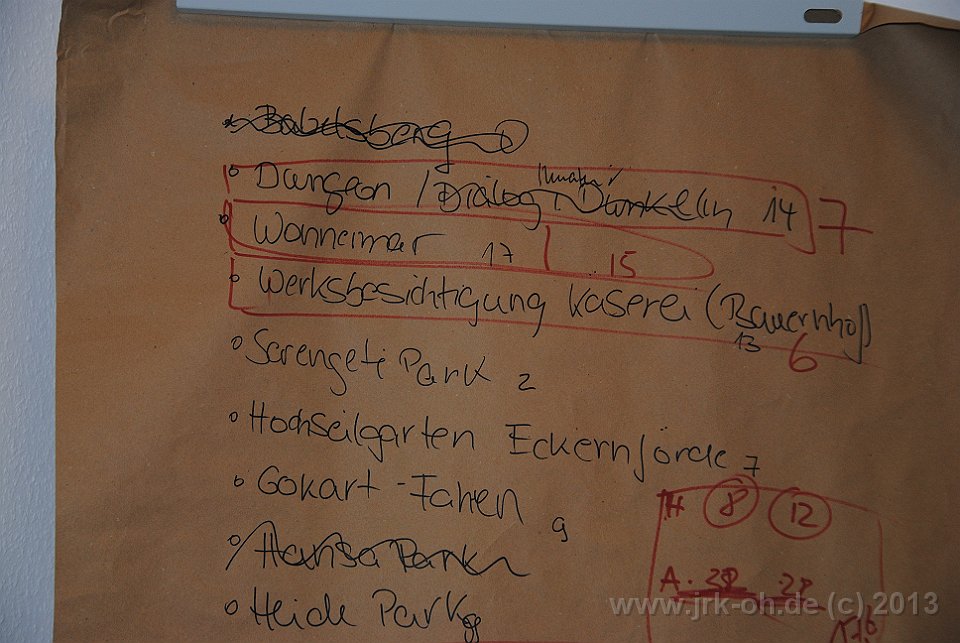 Babelsberg
Dungeon / Dialog Dunkeln 14 7
Wonnemar 17 15
Werksbesichtigung Käserei (Bauernhof)
13 6
Serengeti Park 2
Hochseilgarten Eckernförde 7
Gokart-Fahren 9
Hansa Park
Heide Park
H 8 12
A.
www.jrk-oh.de (c) 2013